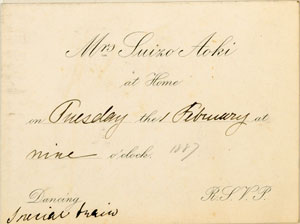 Mrs Suizo Aoki
at Home
on Tuesday the 1 February at
nine o'clock. 1887
Dancing R.S.V.P.
Special train